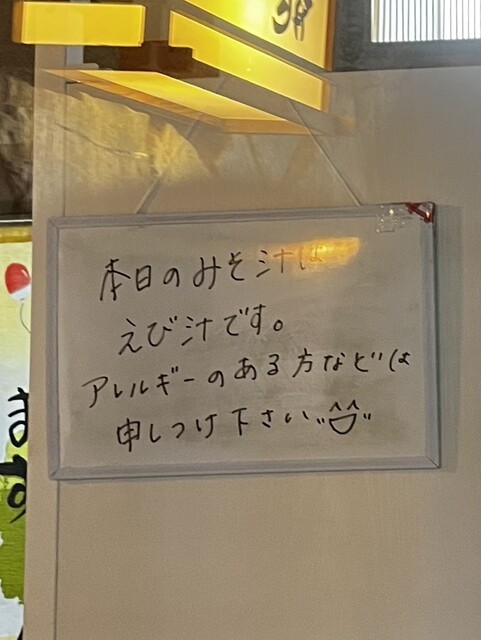 本日のみそ汁は
えび汁です。
アレルギーのある方などは
申しつけ下さい
ます